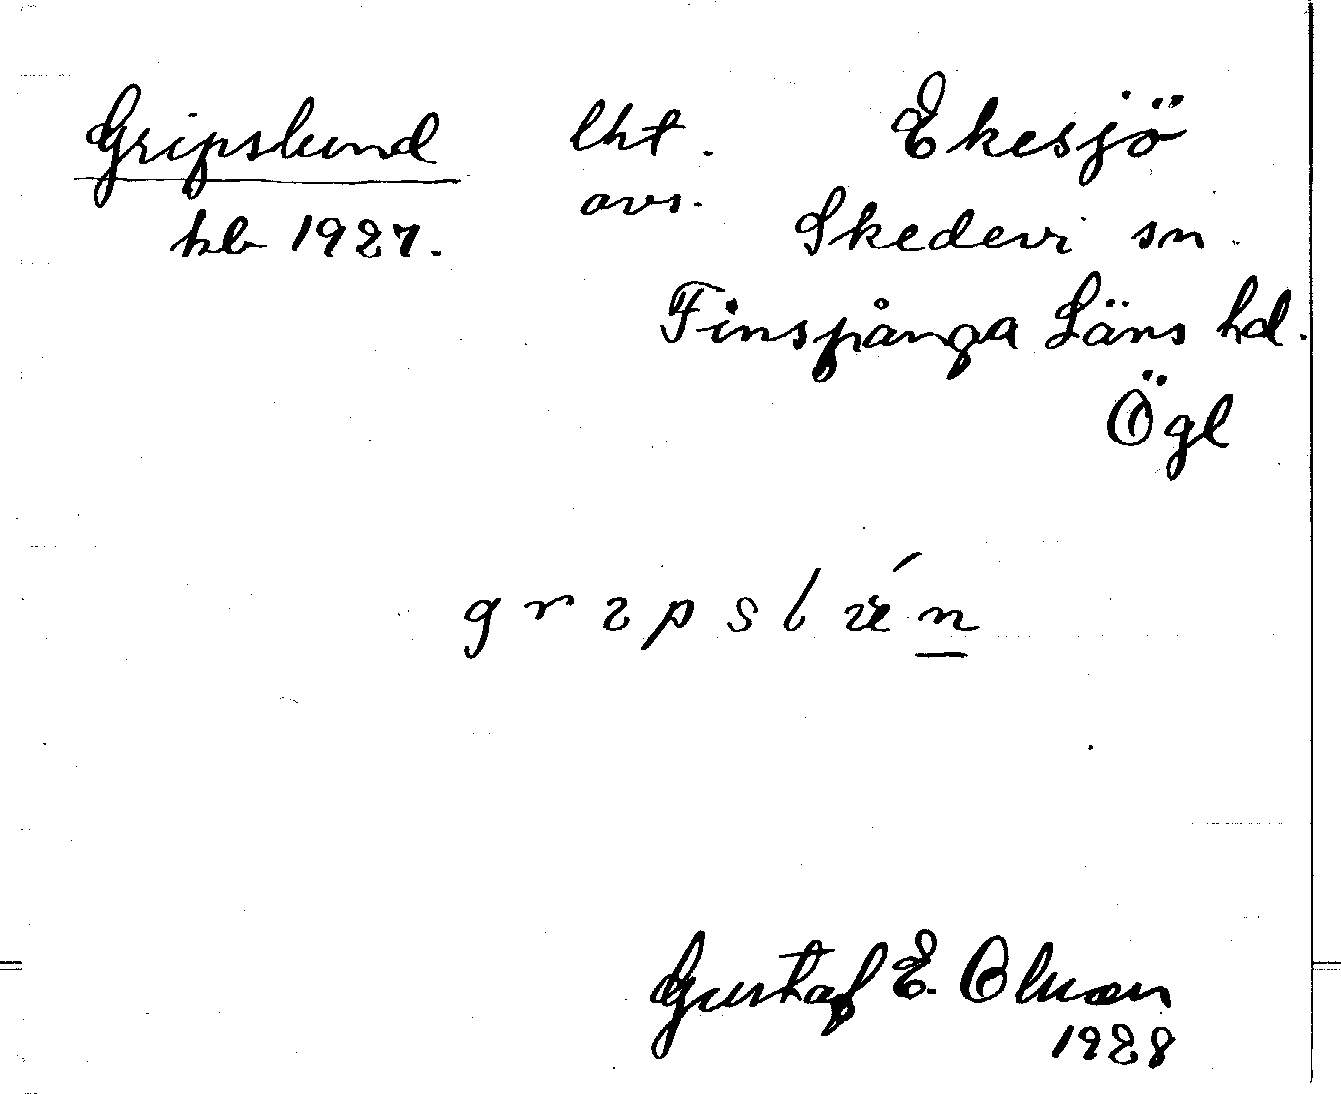 Gripslund lht. Ekesjö
avs.
hb 1927. Skedevi sn.
Finspånga Läns hd.
Ögl
Gustaf E. Olson
1928